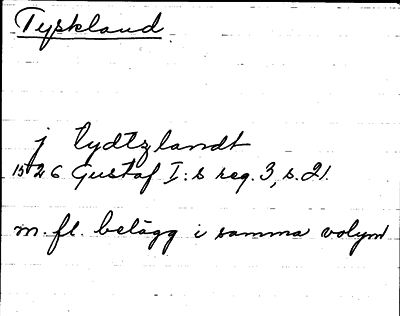 Tyskland.
j tydtzlandt
1526 Gustaf I:s reg. 3, s. 21.
m. fl. belägg i samma volym